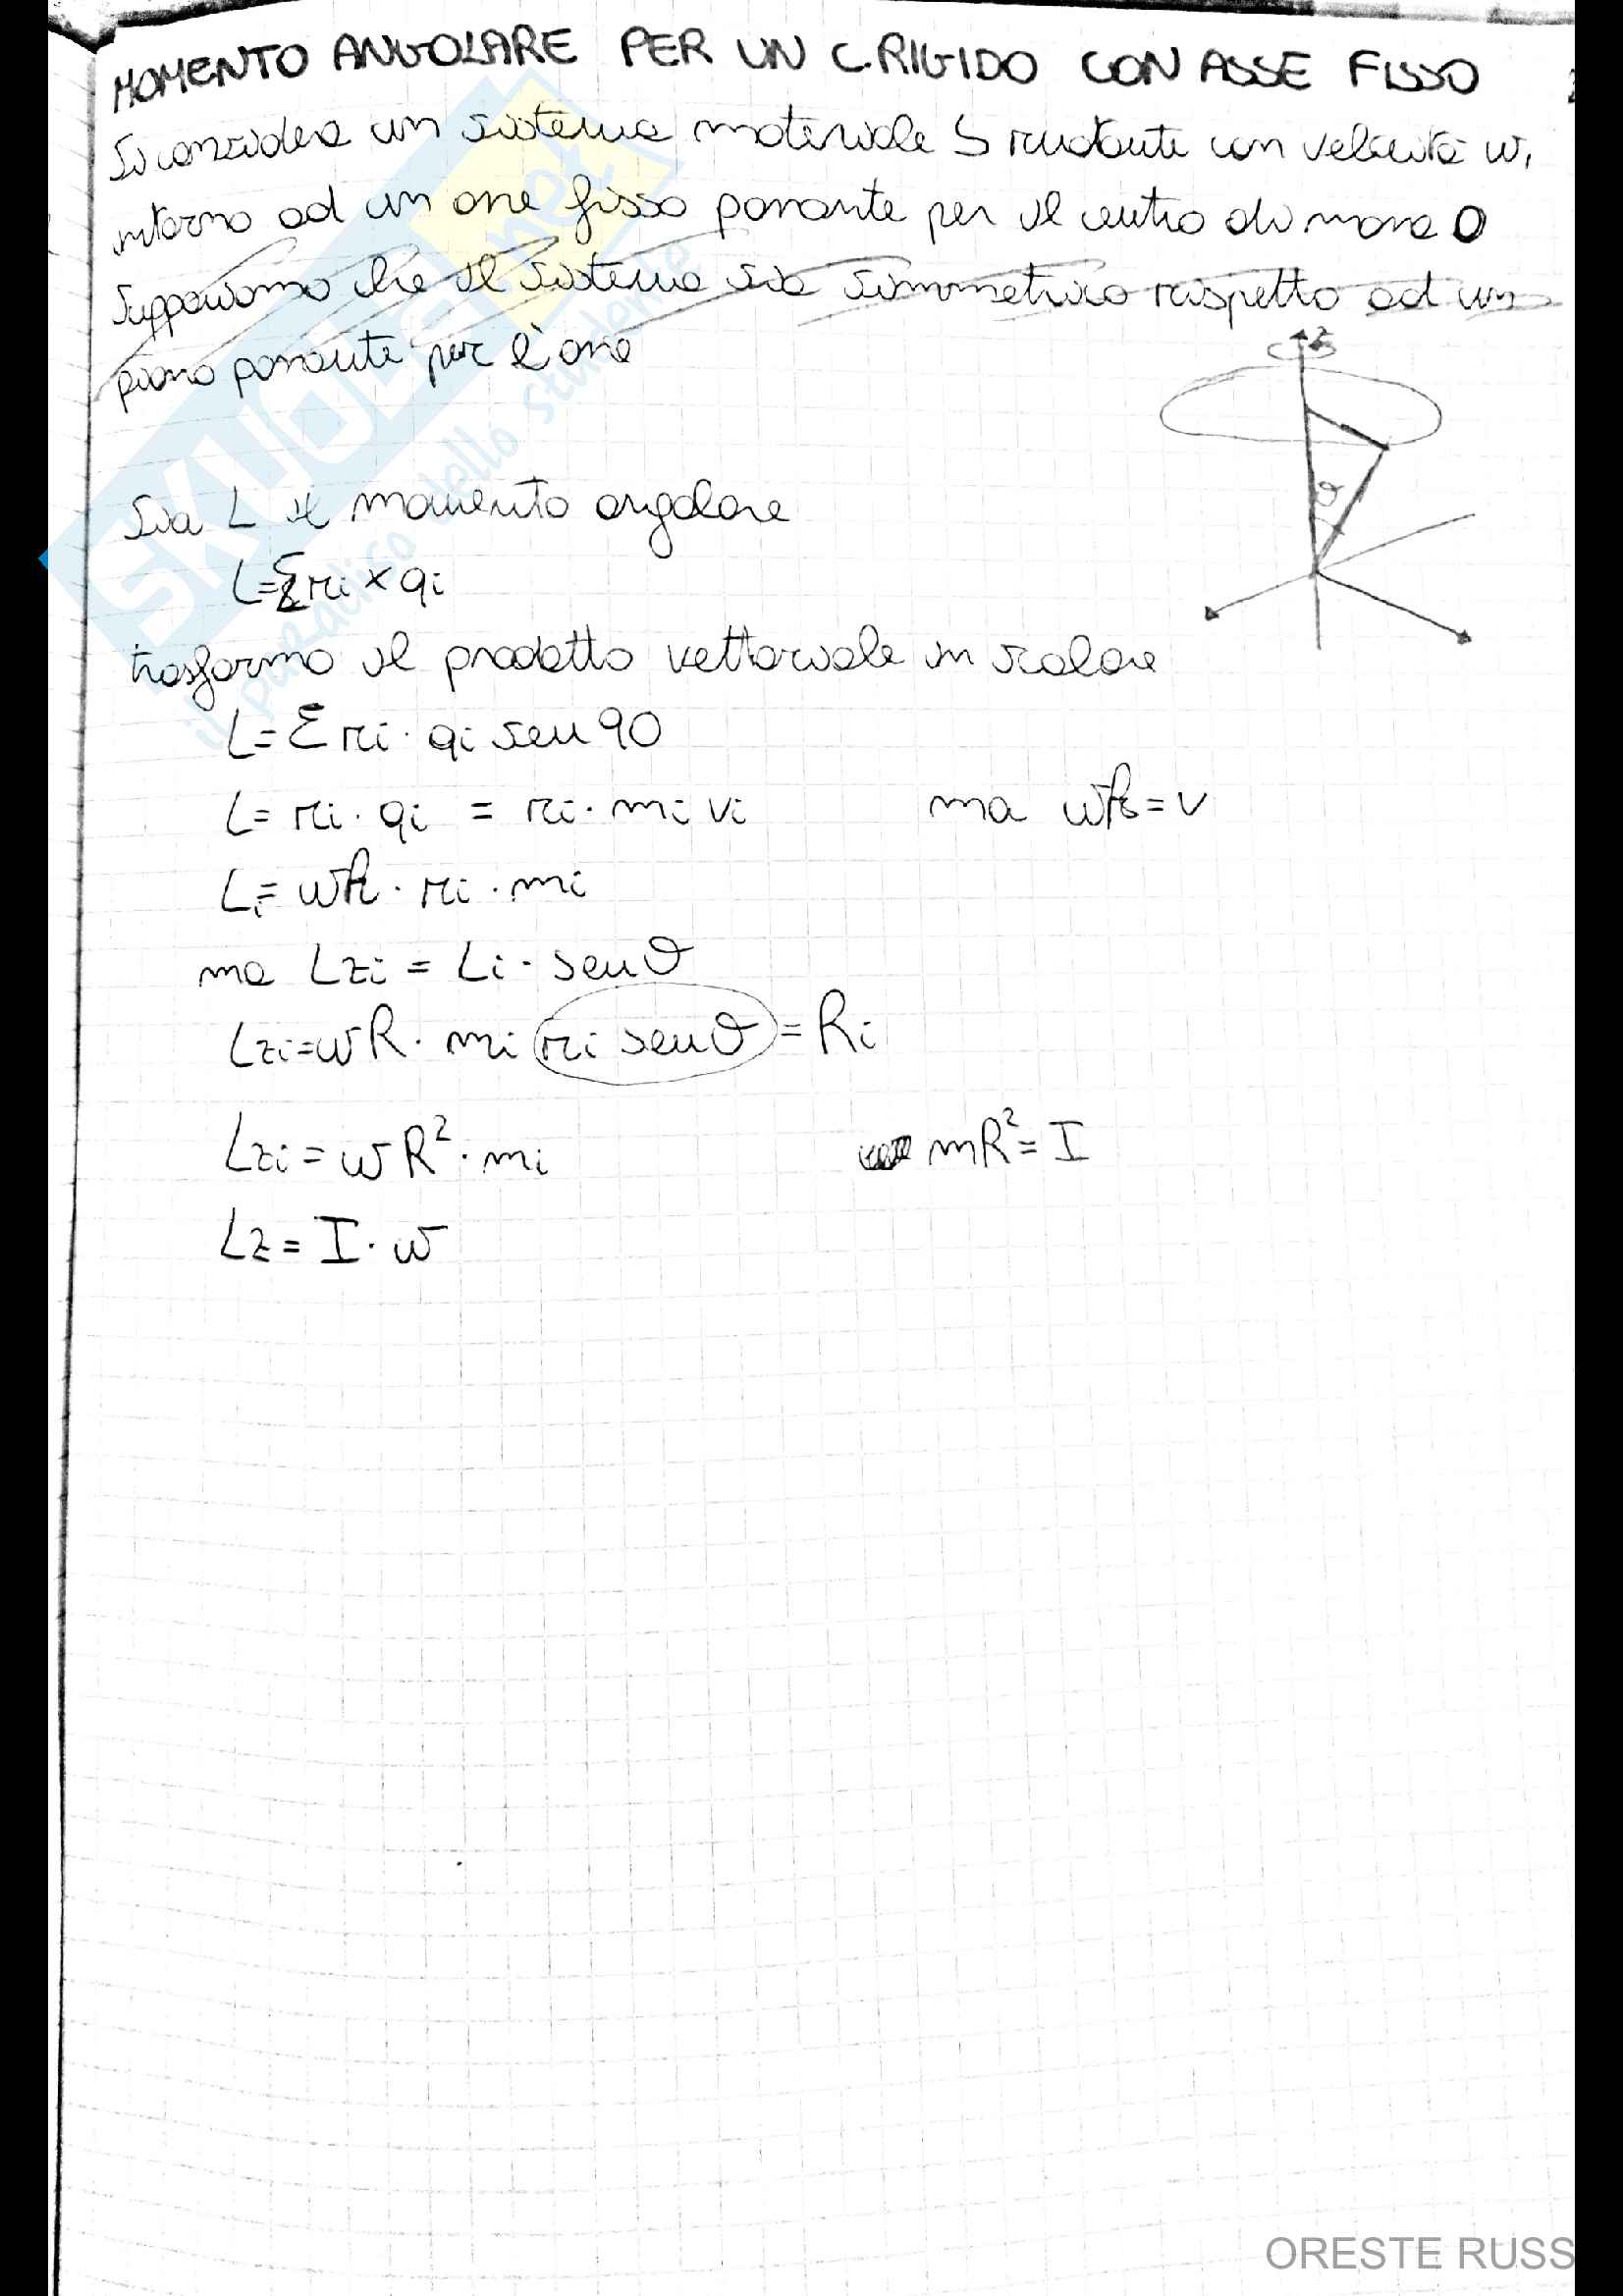 MOMENTO ANGOLARE PER UN C.RIGIDO CON ASSE FISSO
Si considera un sistema materiale S ruotante con velocità ω,
intorno ad un asse fisso passante per il centro di massa O
Supponiamo che il sistema sia simmetrico rispetto ad un
piano passante per l'asse
z
θ
Sia L il momento angolare
L=Σri×qi
trasformo il prodotto vettoriale in scalare
L=Σri·qi sen90
L=ri·qi = ri·mivi ma ωR=v
Li=ωR·ri·mi
ma Lzi=Li·senθ
Lzi=ωR·mi ri senθ=Ri
Lzi=ωR²·mi mR²=I
Lz=I·ω
SKUOLA.net
il paradiso dello studente
ORESTE RUSS